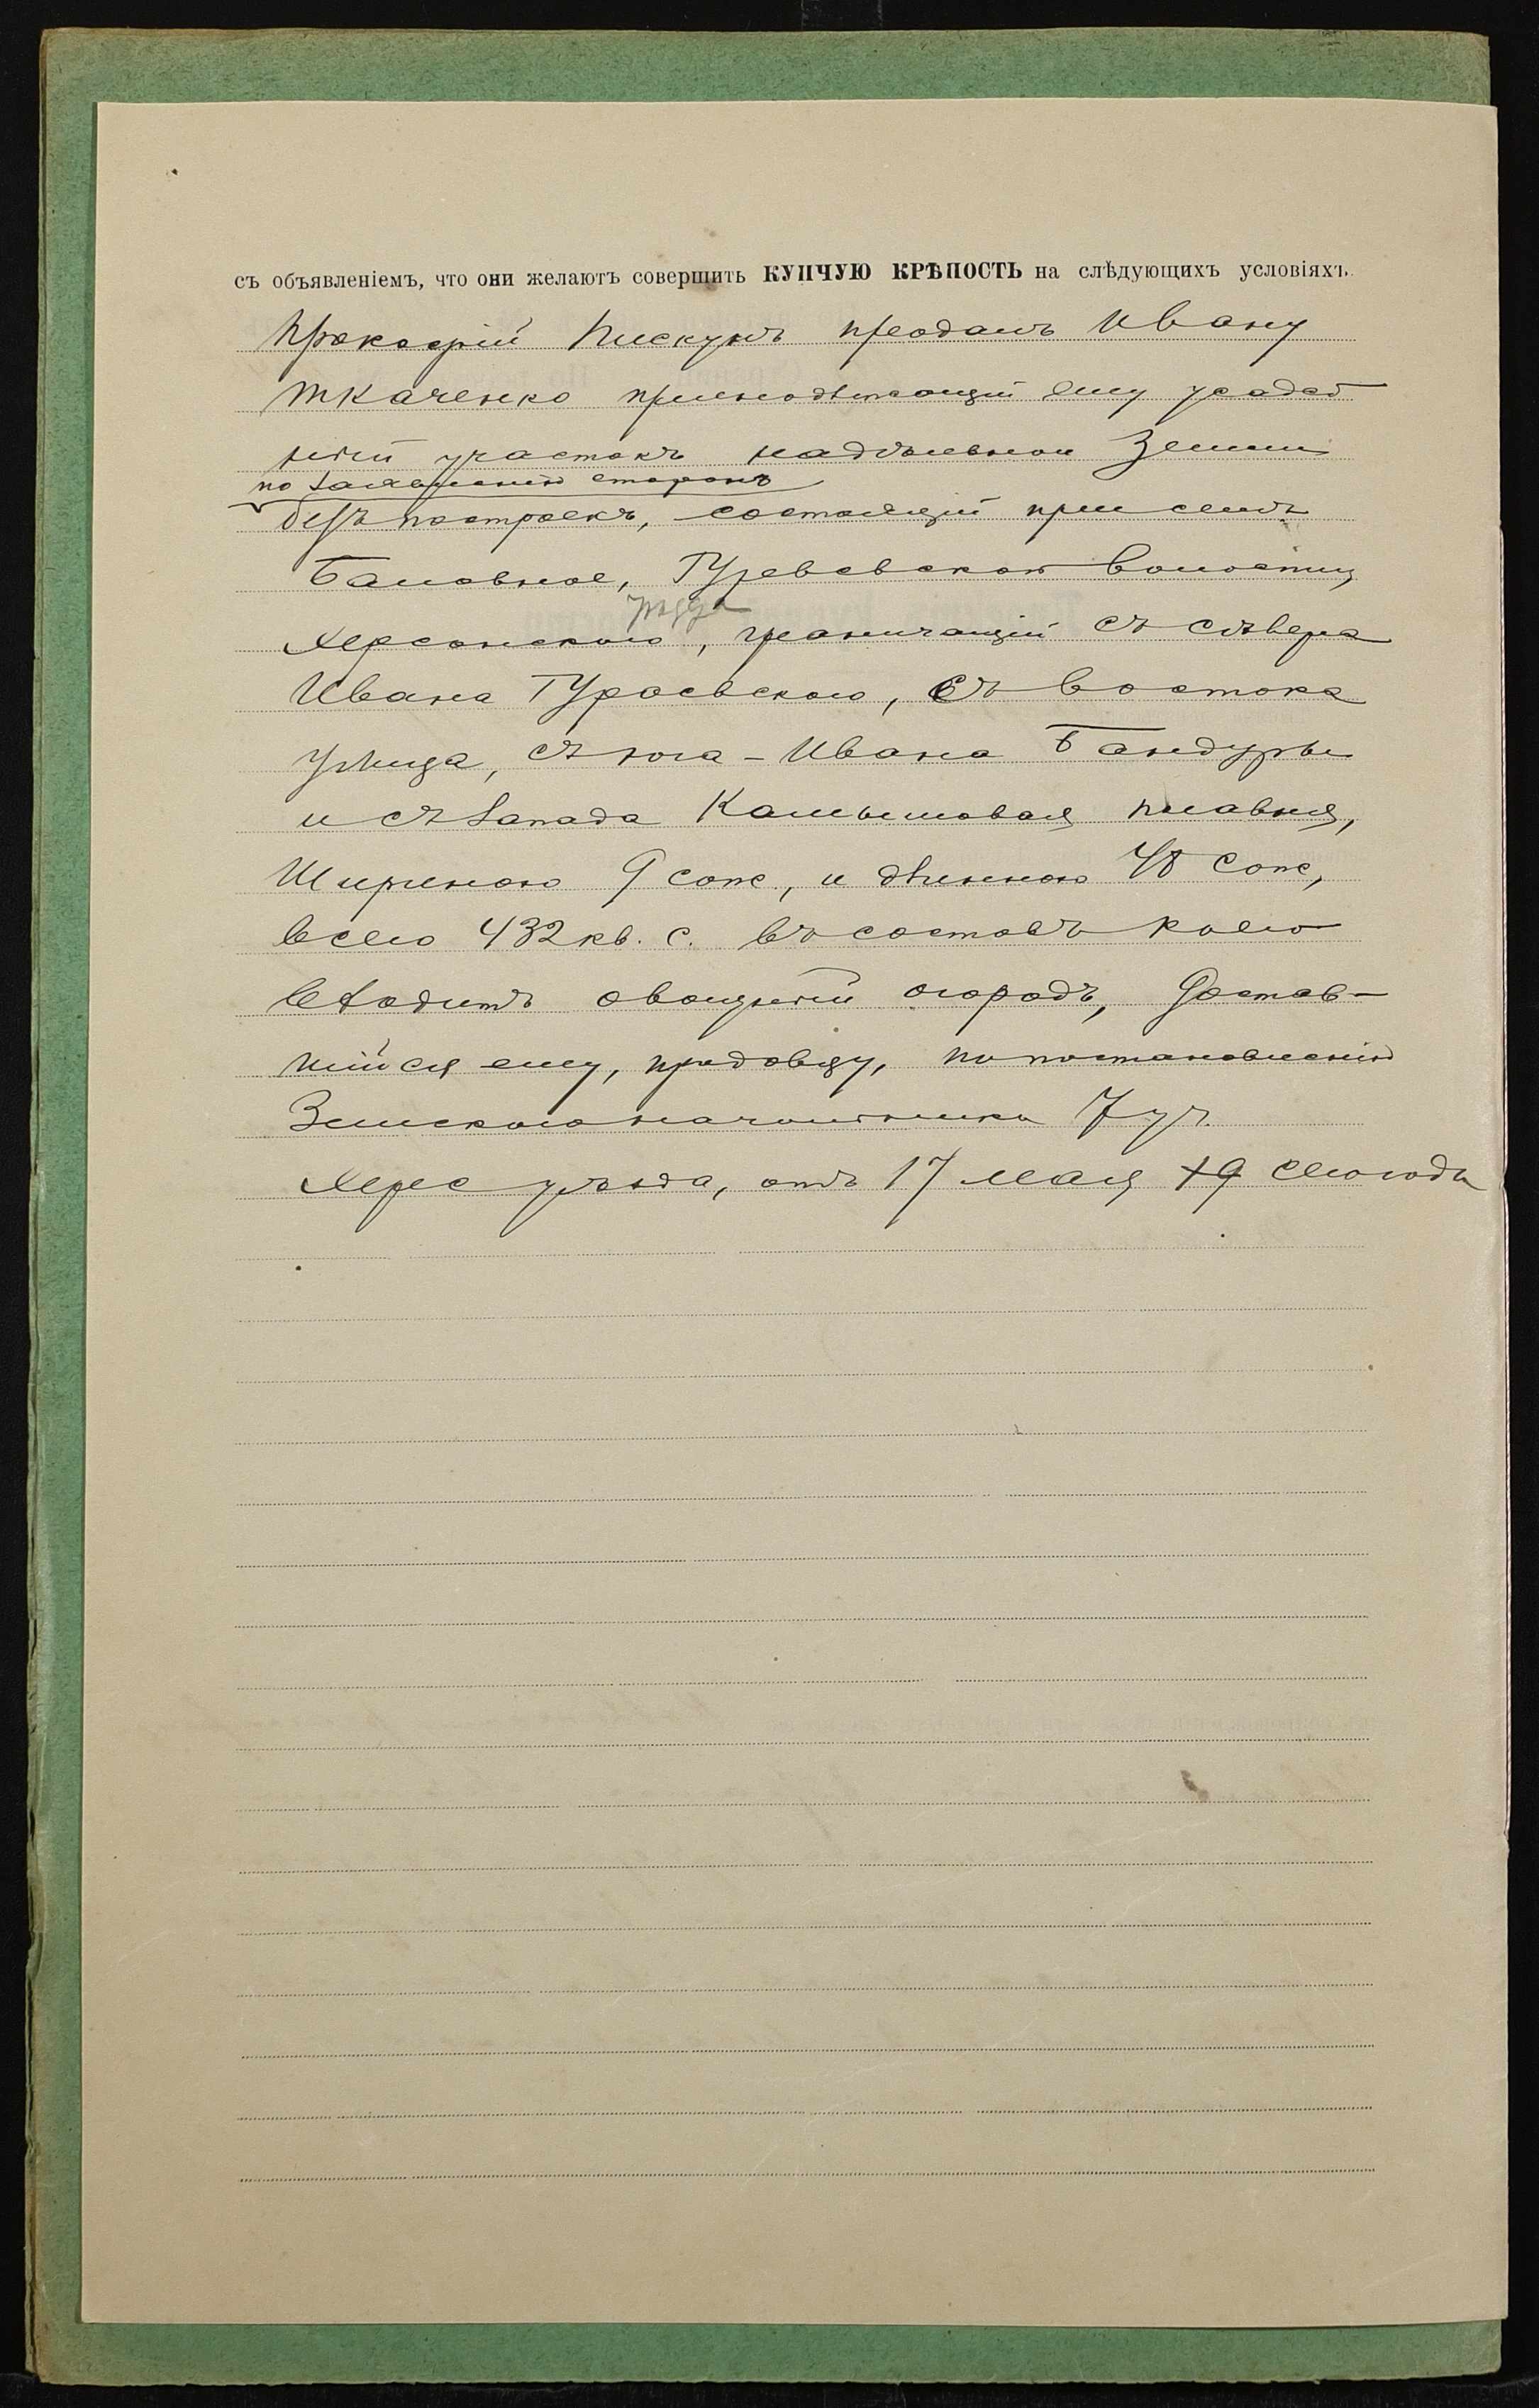 съ объявленіемъ, что они желаютъ совершить КУПЧУЮ КРѢПОСТЬ на слѣдующихъ условіяхъ.
Прокофій Пискунъ продалъ Ивану
Ткаченко принадлежащій ему усадеб
ный участокъ надѣльной земли
по заявленію сторонъ
безъ построекъ, состоящій при селѣ
Баловное, Гурьевской волости,
уѣзда
Херсонскаго, граничащій съ сѣвера
Ивана Гураевскаго, съ востока
улица, съ юга - Ивана Бандуры
и съ запада Камышовая плавня,
шириною 9 саж., и длиною 48 саж,
всего 432 кв. с. въ составъ коего
входитъ овощный огородъ, достав-
шійся ему, продавцу, по постановленію
Земскаго начальника 7 уч.
Херс уѣзда, отъ 17 мая сего года